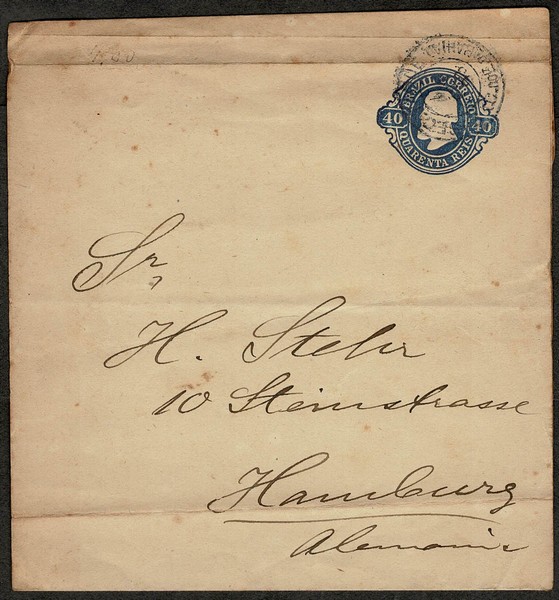 BRAZIL CORREIO
40 40
QUARENTA REIS
Sr,
H. Stehr
10 Steinstrasse
Hamburg
Alemania